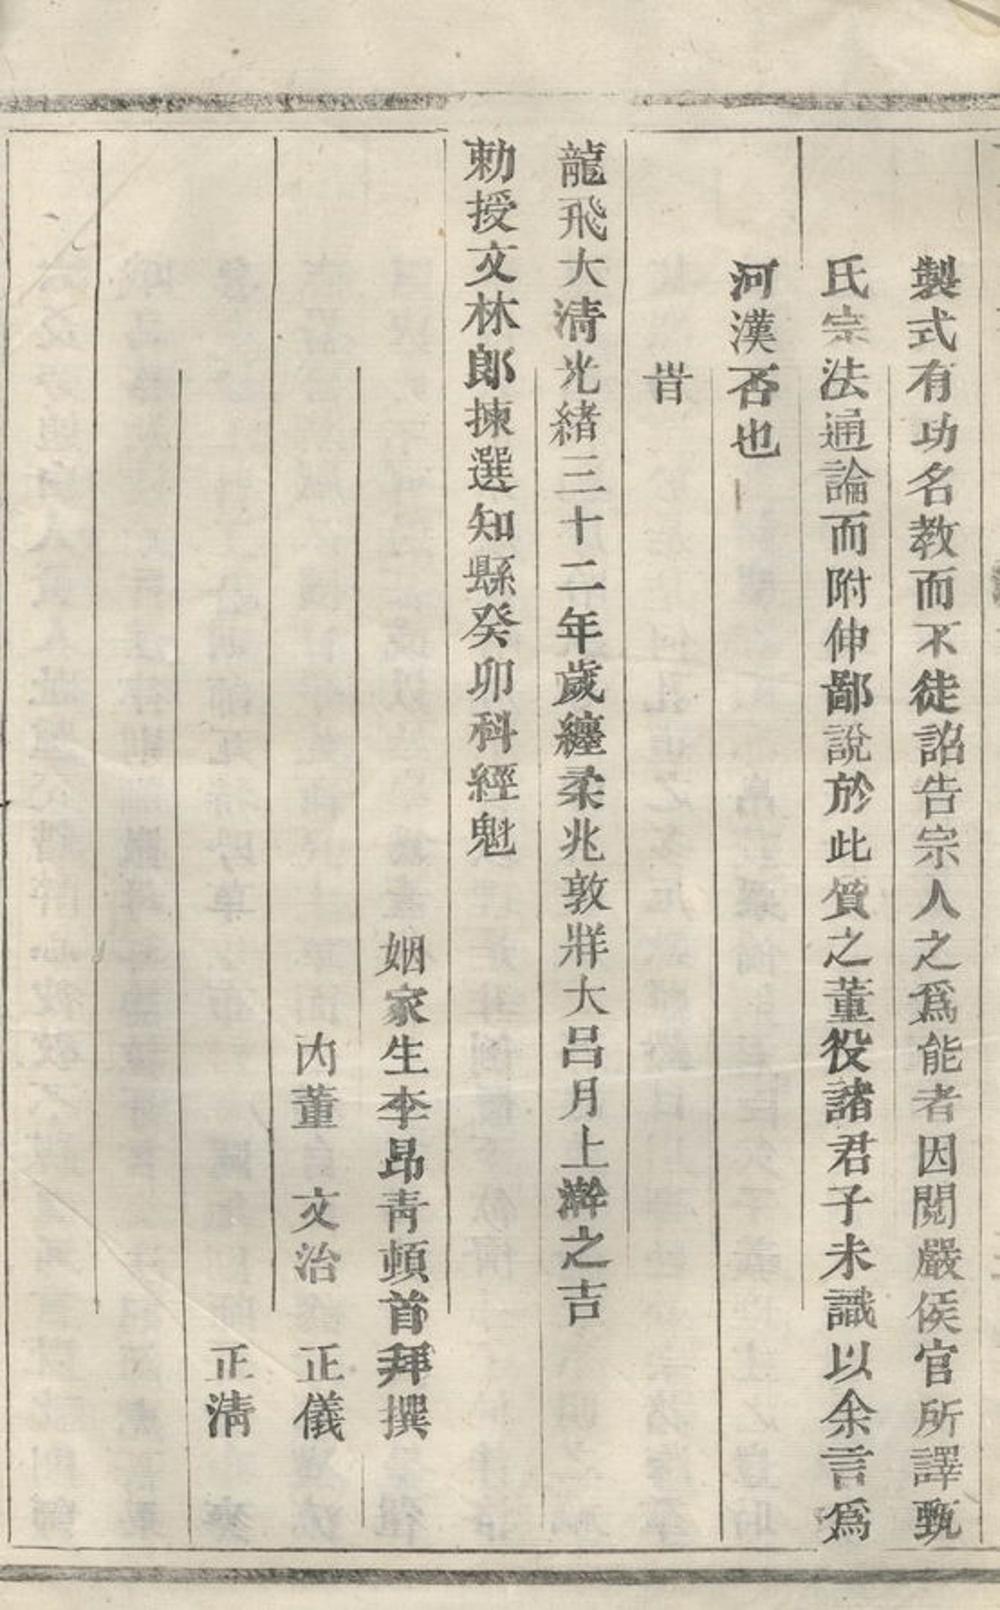 製式有功名教而不徒詔告宗人之爲能者因閱嚴侯官所譯甄
氏宗法通論而附伸鄙說於此質之董役諸君子未識以余言爲
河漢否也
旹
龍飛大清光緒三十二年歲纏柔兆敦牂大呂月上澣之吉
勅授文林郎揀選知縣癸卯科經魁
姻家生李昂靑頓首拜撰
內董 文治 正儀
正淸